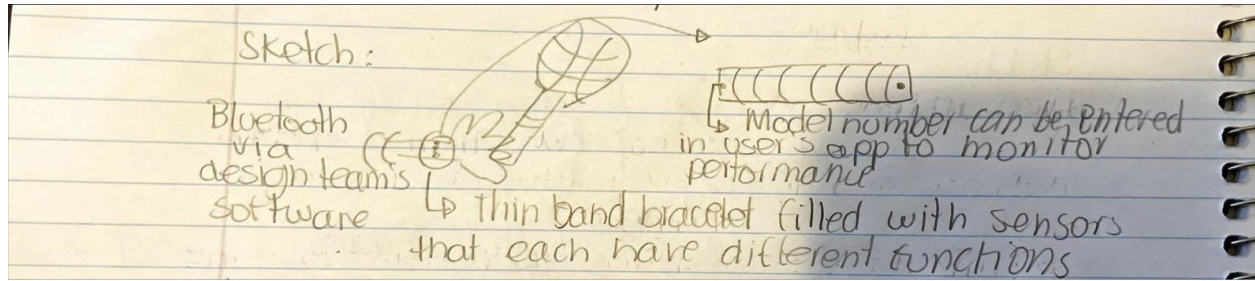 Sketch:
Bluetooth
via
design team's
software
Model number can be entered
in user's app to monitor
performance
thin band bracelet filled with sensors
that each have different functions